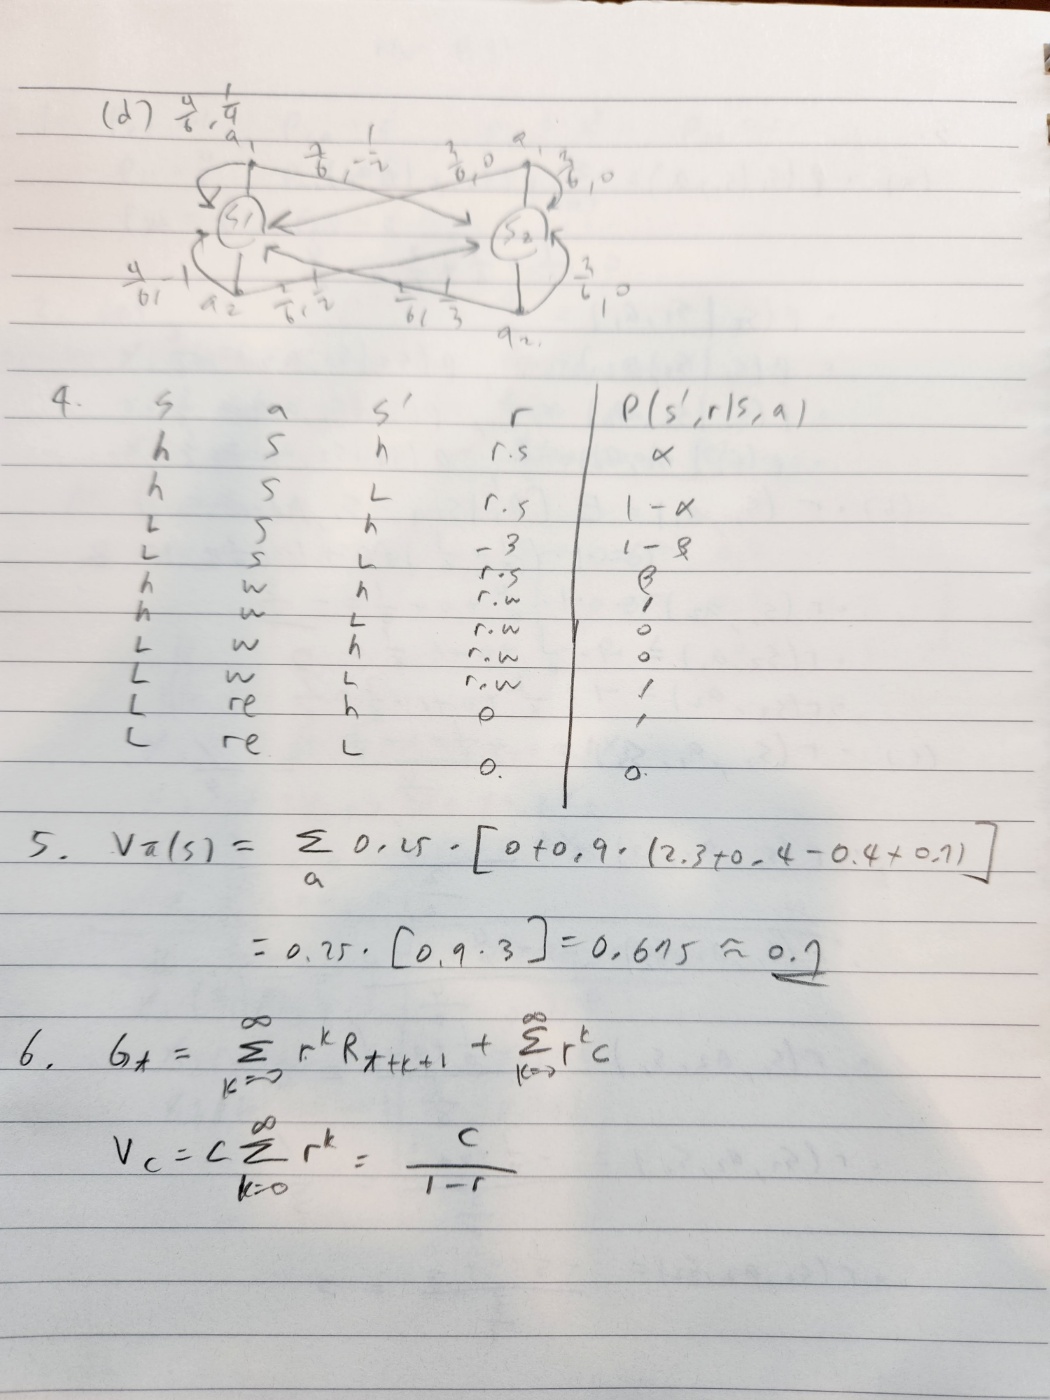 (d) 4/6, 1/4
a1 2/6, -1/2 3/6, 0 a1 3/6, 0
S1 S2
4/6, -1 a2 2/6, 1/2 1/3 a2. 3/6, 0
4. s a s' r P(s',r|s,a)
h s h r.s α
h s L r.s 1-α
L s h -3 1-β
L s L r.s β
h w h r.w 1
h w L r.w 0
L w h r.w 0
L w L r.w 1
L re h 0 1
L re L 0. 0.
5. Vπ(s) = Σ_a 0.25 · [0+0.9·(2.3+0.4-0.4+0.7)]
= 0.25 · [0.9·3] = 0.675 ≈ 0.7
6. Gt = Σ_{k=0}^∞ r^k R_{t+k+1} + Σ_{k=0}^∞ r^k c
Vc = c Σ_{k=0}^∞ r^k = c/(1-r)